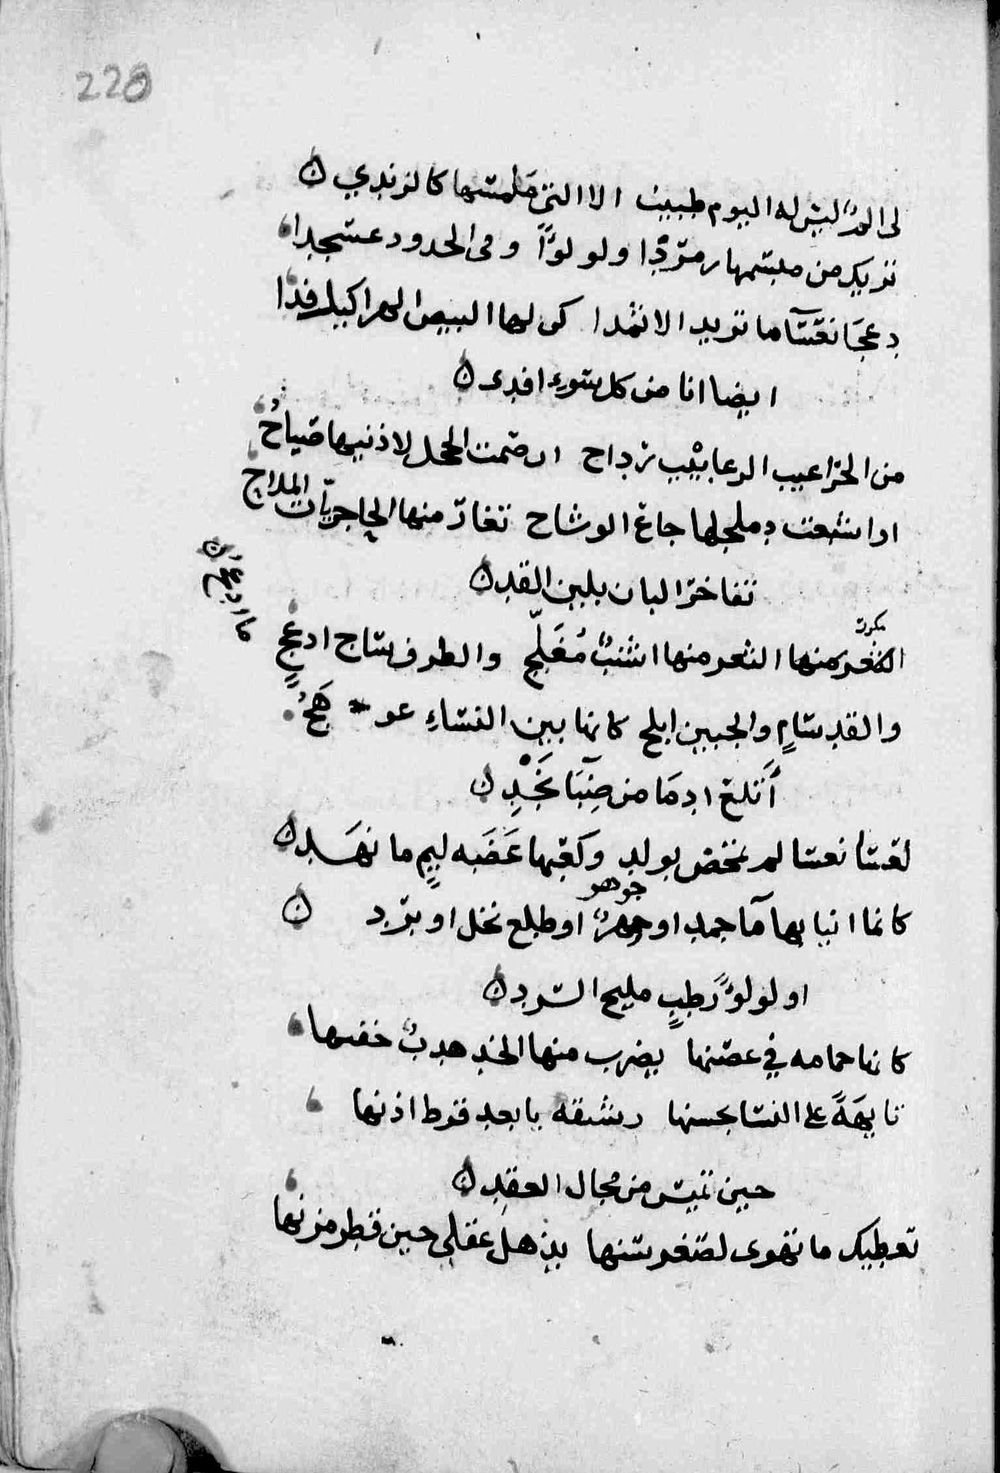 228
لى الدٌ ليس له اليوم طبيب الا التى ملمسها كالزندي ن
تريك من مبسمها زمرّدا ولولوًا وفى الخدود عسجدا
دعجَا نعسَآ ما تريد الاثمدا البيض
ايضا انا من كل سوء افدى ن
من الخراعيب الرعابيْب رداح ان صمت الحجل لاذنيها صياحُ
اذا شبعت دملجها جاع الوشاح تغارّ منها الحاجريّات الملاح
تفاخر البان بلين القد ن
مكرر
الثغر منها الثغر منها اشنبٌ مُفَلّج والطرف ساج ادعجٍ
والقد سامٍ والجبين ابلج كانها بين النساء عو * هَجُ
أَتلع ادمَا من ضِبَا نَجْدِ ن
لعسا نعسا لم تمخض بولد وكعبها غَضَبه ليمٍ ما نهَد ن
جوهر
كانما انيابها مآ جمد او جوهرٌ او طلع نخل او برَد ن
او لولوٌ رَطبٍ مليح السرد ن
كانها حمامه في غصنها يضرب منها الخد هدبُ جفنها
تايهَةً على النسا بحسنها رشيقه يا بعد قرط اذنها
حين تميس من مجال العقد ن
تعطيك ما تهوى لصغر سنها يذهل عقلي حين قطر مزنها